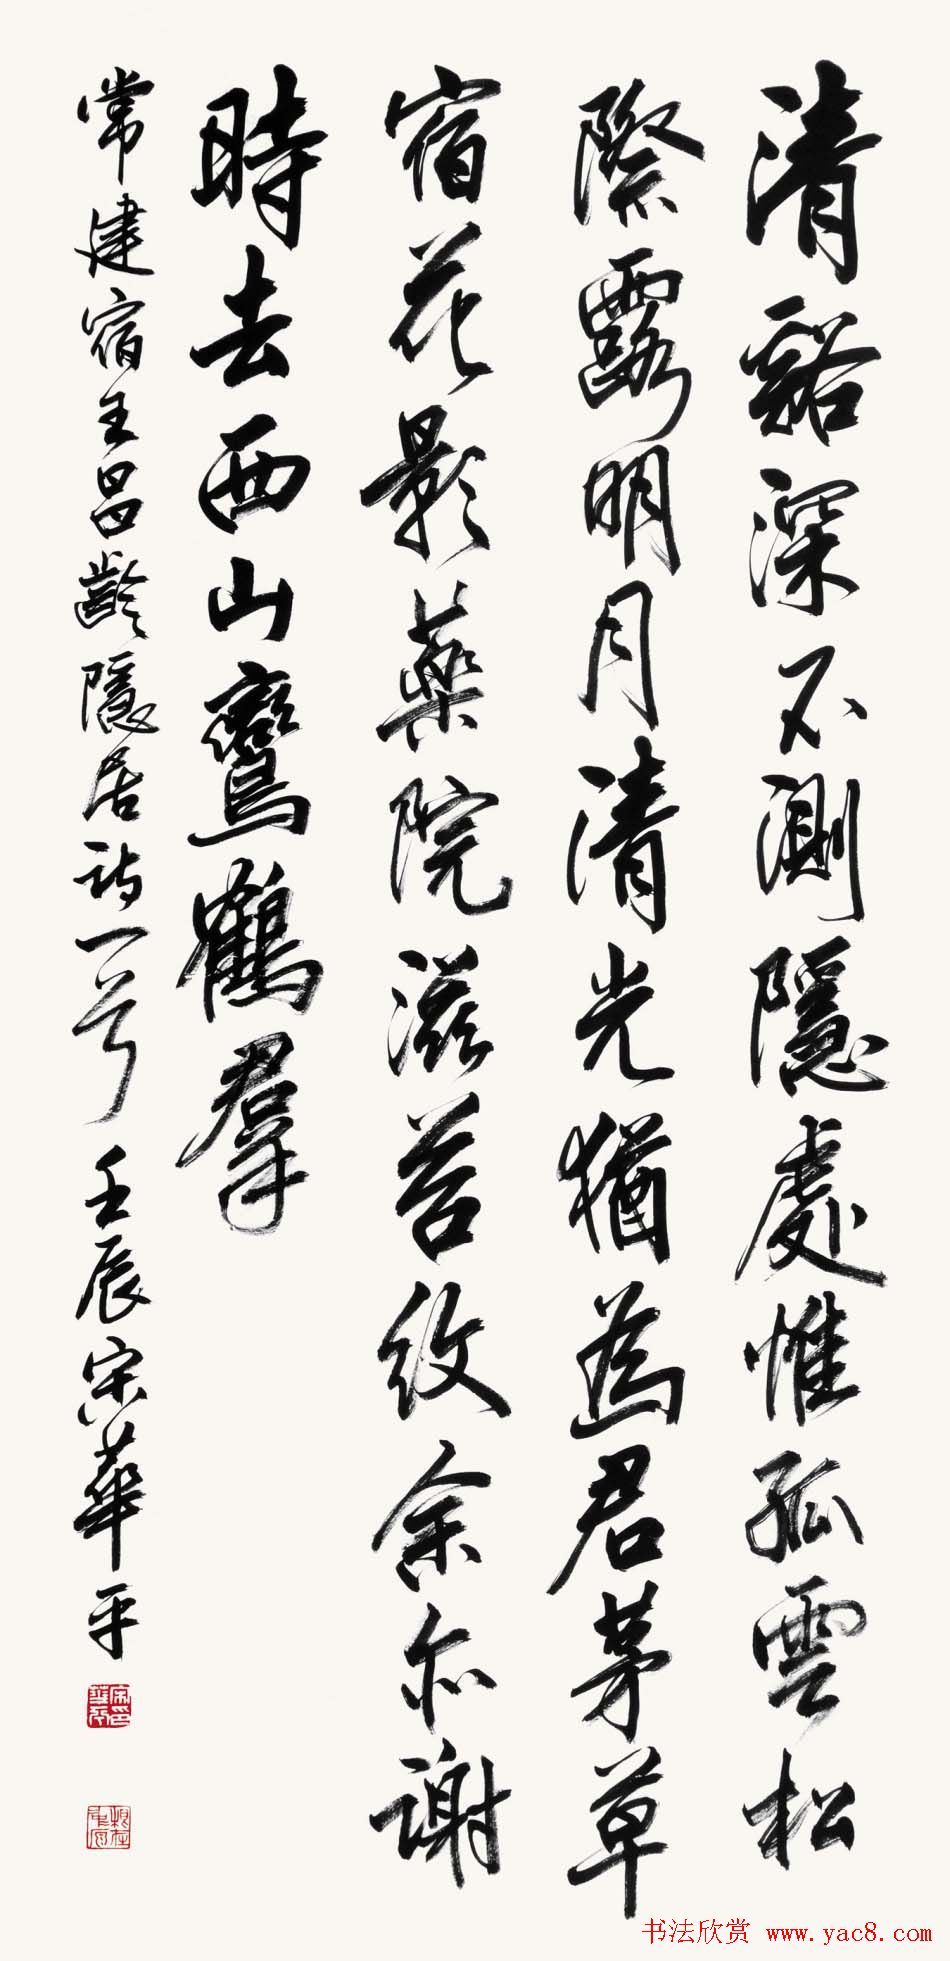 清谿深不測隱處惟孤雲松
際露明月清光猶為君茅草
宿花影藥院滋苔紋余亦謝
時去西山鸞鶴羣
常建宿王昌齡隱居詩一首 壬辰宋華平
书法欣赏 www.yac8.com